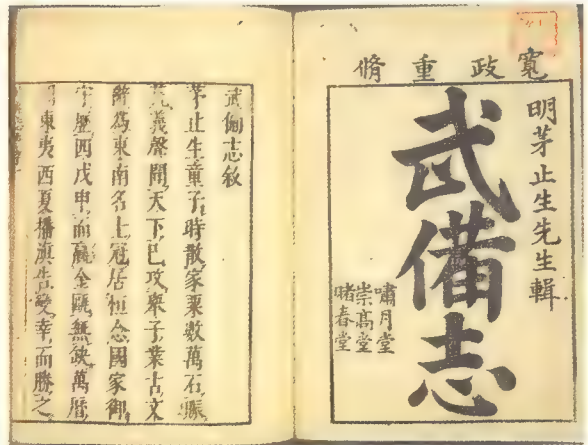 寬政重脩
明茅止生先生輯
武備志
嘯月堂
崇高堂
曙春堂
武備志敘
茅止生童子時散家粟數萬石賑
荒義聲聞天下已攻舉子業古文
辭為東南名士冠居恒念國家御
宇歷四戊申而金甌無缺萬曆
東夷西夏播滇告變幸而勝之